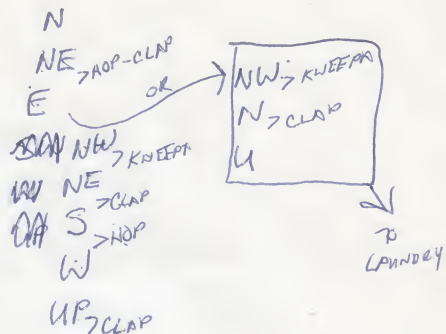 N
NE >HOP-CLAP
E
NW >KNEEPA
NE >CLAP
S >HOP
W
UP >CLAP
OR
NW >KNEEPA
N >CLAP
U
TO
LAUNDRY